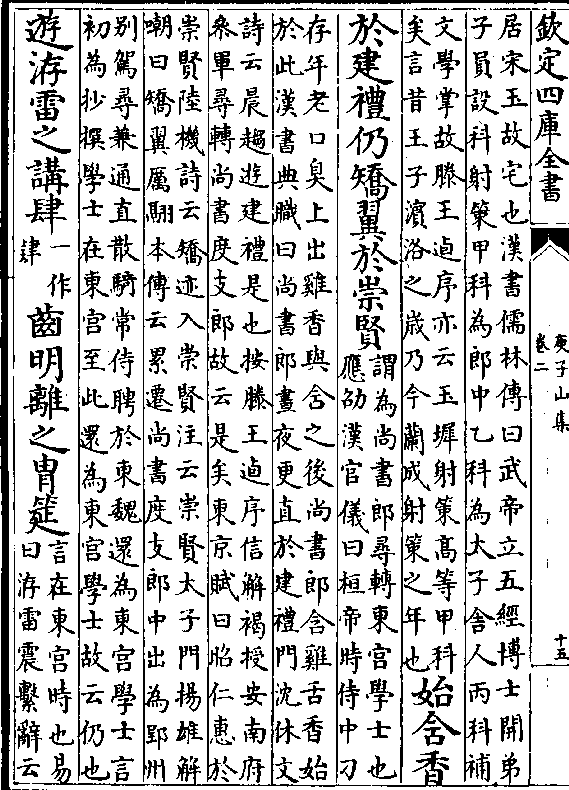 欽定四庫全書
庾子山集
卷二
十五
居宋玉故宅也漢書儒林傳曰武帝立五經博士開弟
子員設科射策甲科為郎中乙科為太子舍人丙科補
文學掌故滕王逌序亦云玉墀射策髙等甲科
矣言昔王子濱洛之歲乃今蘭成射策之年也
始含香
於建禮仍矯翼於崇賢
謂為尚書郎尋轉東宮學士也
應劭漢官儀曰桓帝時侍中刁
存年老口臭上出雞香與含之後尚書郎含雞舌香始
於此漢書典職曰尚書郎晝夜更直於建禮門沈休文
詩云晨趨遊建禮是也按滕王逌序信解褐授安南府
叅軍尋轉尚書度支郎故云是矣東京賦曰昭仁惠於
崇賢陸機詩云矯迹入崇賢注云崇賢太子門揚雄解
嘲曰矯翼厲翮本傳云累遷尚書度支郎中出為郢州
别駕尋兼通直散騎常侍聘於東魏還為東宮學士言
初為抄撰學士在東宮至此還為東宮學士故云仍也
遊洊雷之講肆
一作
肄
齒明離之胄筵
言在東宮時也易
曰洊雷震繫辭云